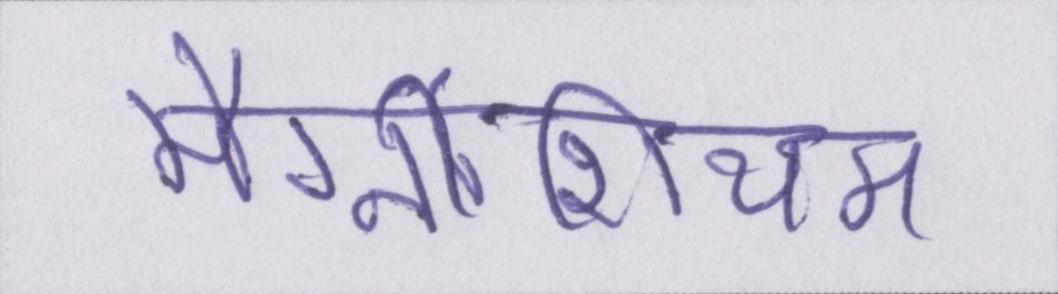 मैग्नीशियम